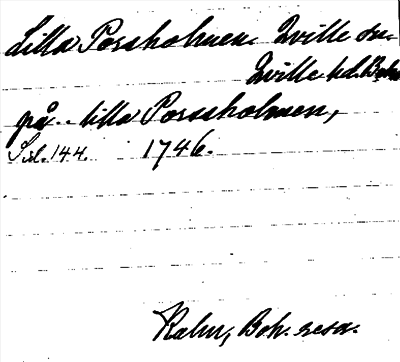 Lilla Porsholmen. Qville sn.
Qville hd. Boh
på.. lilla Porssholmen,
Sid. 144. 1746.
Kalm, Boh. resa.